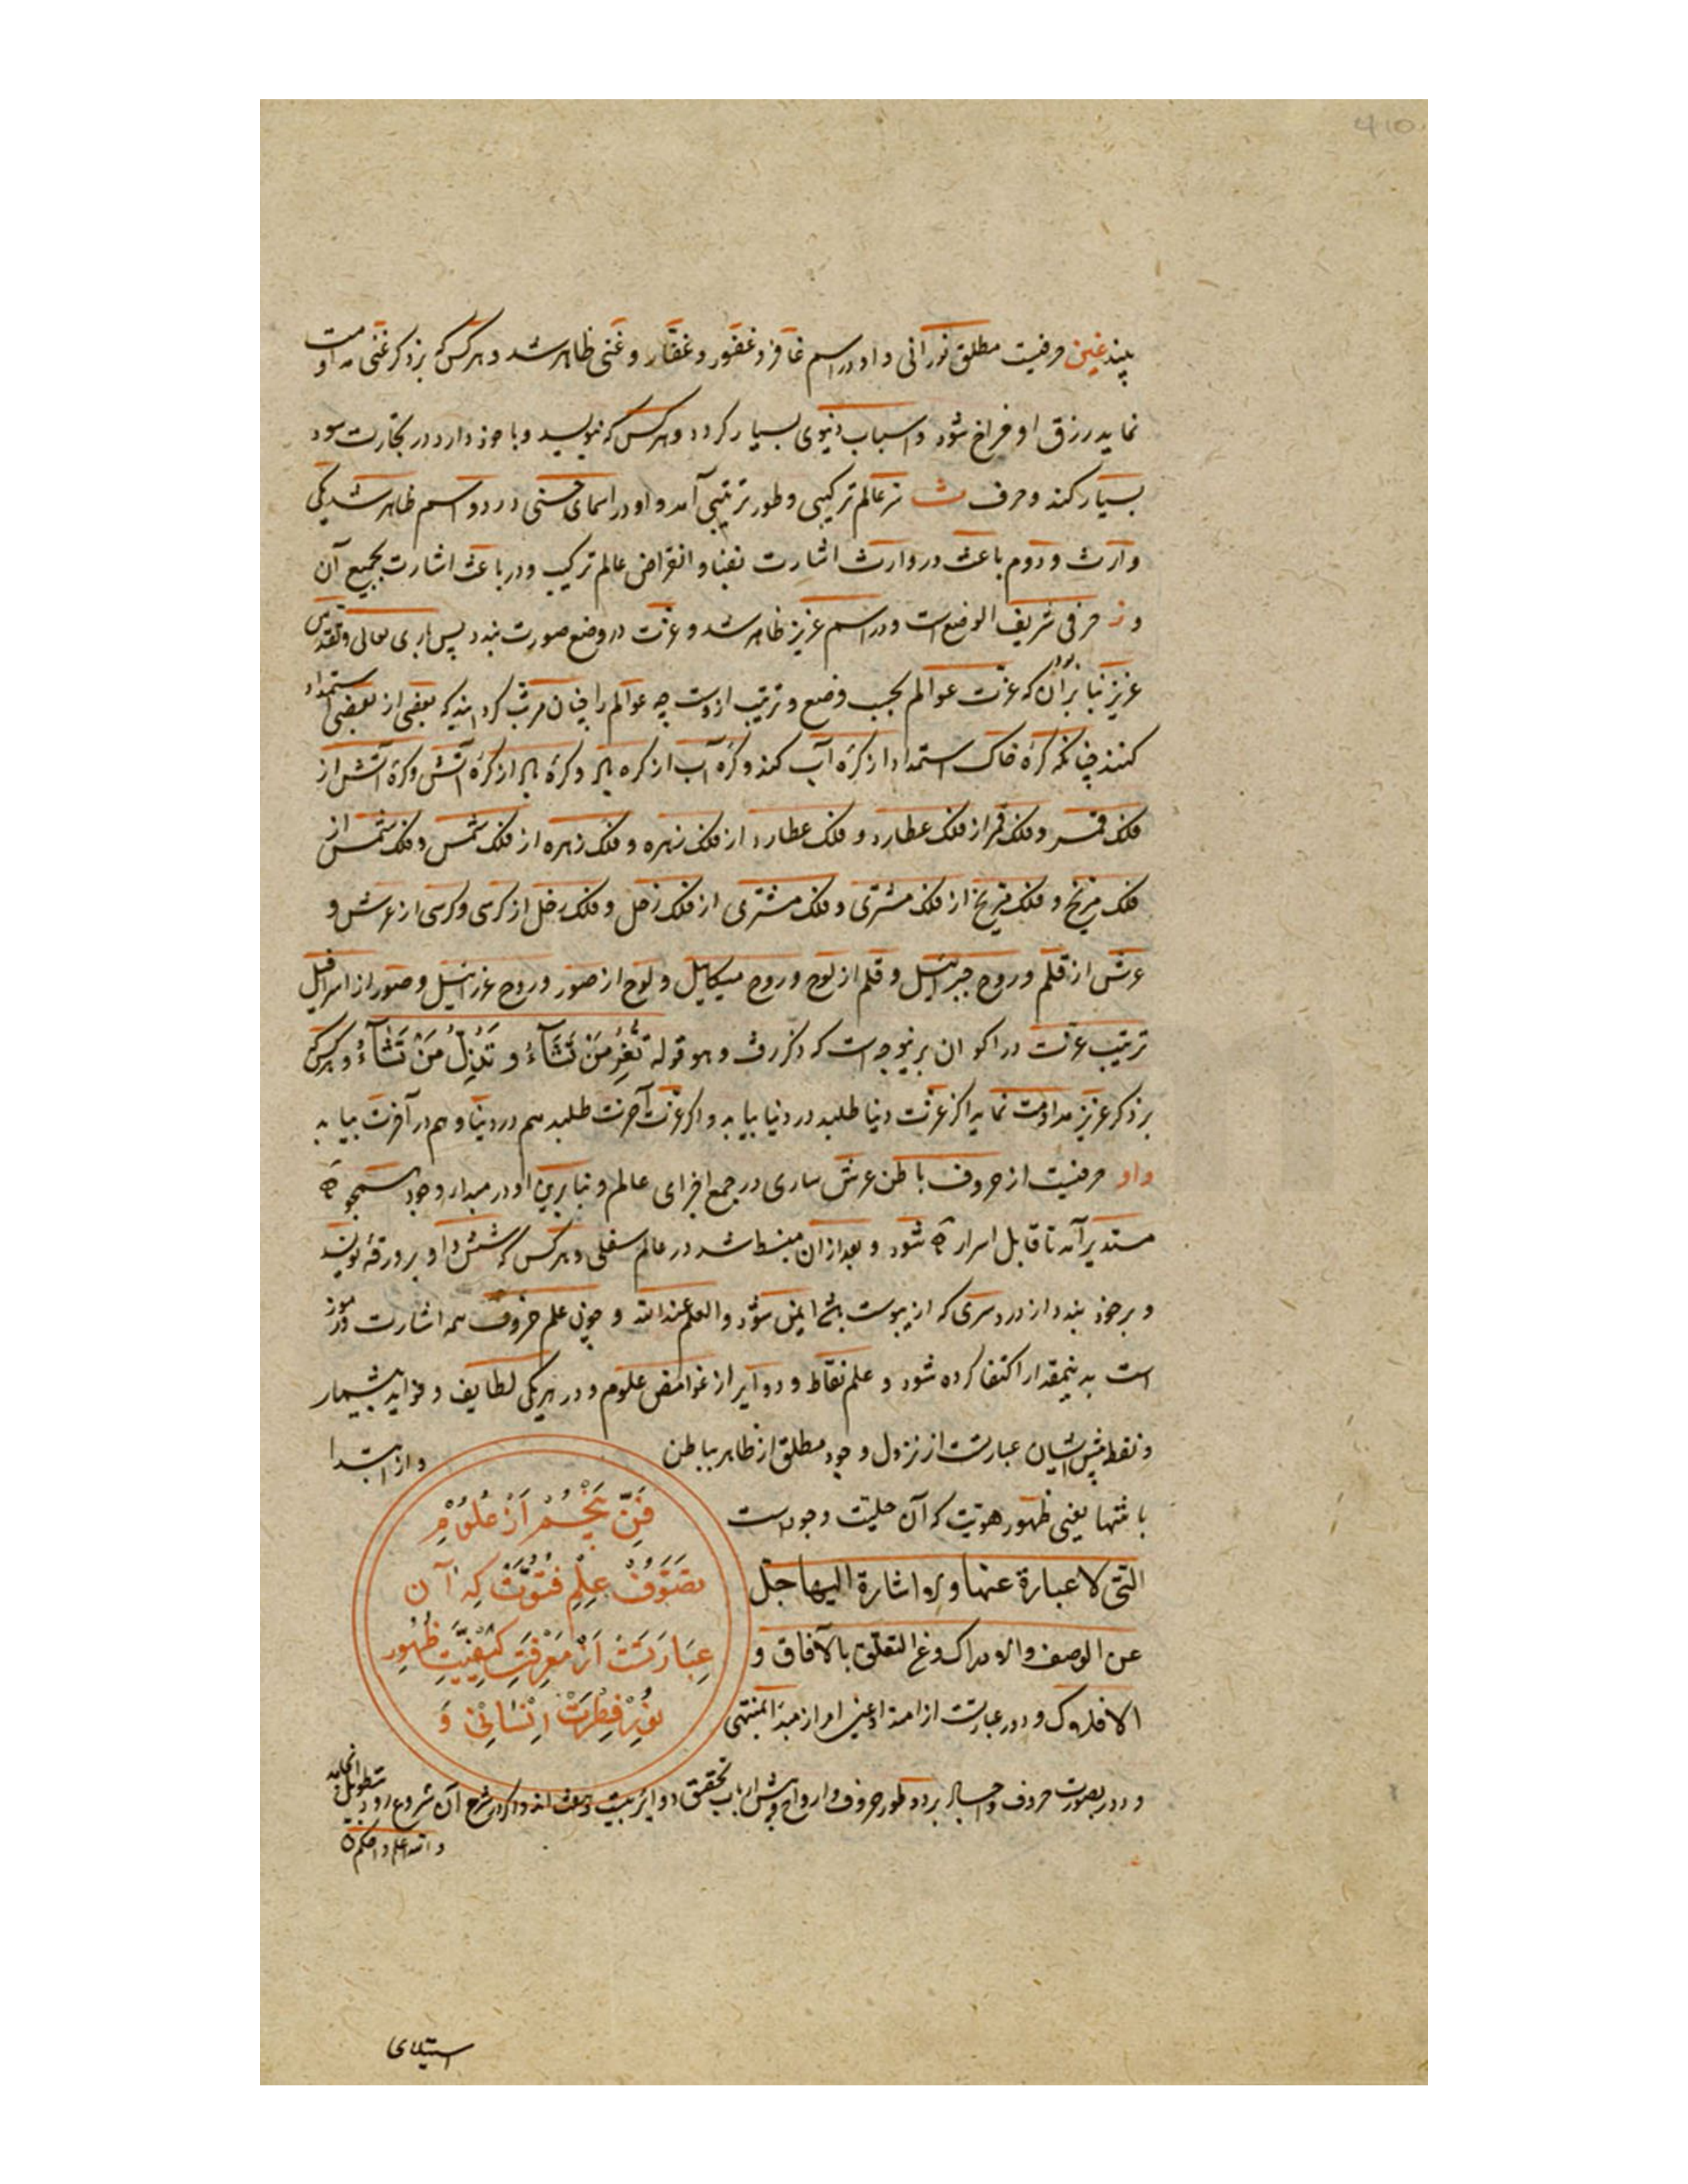 410
بیند غین حرفیست مطلق نورانی و او در اسم غافر و غفور و غفار و غنی ظاهر شد و هر کس که بر ذکر غنی مداومت
نماید رزق او فراخ شود و اسباب دنیوی بسیار کردد و هر کس که بنویسد و با خود دارد در تجارت سود
بسیار کند و حرف ث از عالم ترکیبی و طور ترتیبی آمد و او در اسمای حسنی در دو اسم ظاهر شد یکی
وارث و دوم باعث در وارث اشارت بفنا و انقراض عالم ترکیب و در باعث اشارت بجمیع آن
و ز حرفی شریف الوضع است و در اسم عزیز ظاهر شد و عزت در وضع صورت بندد پس باری تعالی و تقدس
عزیز بنا بر آن بود که عزت عوالم بحسب وضع و ترتیب ازوست چه عوالم را چنان مرتب کردانید که بعضی از بعضی استمداد
کنند چنانکه کرهٔ خاک استمداد از کرهٔ آب کند و کرهٔ آب از کره باد و کرهٔ باد از کرهٔ آتش و کرهٔ آتش از
فلک قمر و فلک قمر از فلک عطارد و فلک عطارد از فلک زهره و فلک زهره از فلک شمس و فلک شمس از
فلک مریخ و فلک مریخ از فلک مشتری و فلک مشتری از فلک زحل و فلک زحل از کرسی و کرسی از عرش و
عرش از قلم و روح جبرائیل و قلم از لوح و روح میکاییل و لوح از صور و روح عزرائیل و صور از اسرافیل
ترتیب عزت در اکوان برینوجه است که ذکر رفت و هو قوله تُعِزُّ مَنْ تَشَآءُ وَ تُذِلُّ مَنْ تَشَآءُ و هر کس که
بر ذکر عزیز مداومت نماید اگر عزت دنیا طلبد در دنیا بیابد و اگر عزت آخرت طلبد هم در دنیا و هم در آخرت بیابد
واو حرفیست از حروف باطن عرش ساری در جمع اجزای عالم و بنا برین او در مبدا وجود همچو ه
مستدیر آمد تا قابل اسرار ه شود و بعد از آن منبسط شد در عالم سفلی و هر کس که شش واو بر ورقهٔ نویسد
و بر خود بندد از درد سری که از یبوست باشد ایمن شود و العلم عند الله و چون علم حروف همه اشارت و رموز
است بدینمقدار اکتفا کرده شود و علم نقاط و دوایر از غوامض علوم و در هر یکی لطایف و فواید بیشمار
و نقطه پیش ایشان عبارتست از نزول وجود مطلق از ظاهر بباطن و از ابتدا
بانتها یعنی ظهور هویت که آن حلیت وجود است
التی لا عبارة عنها ولا اشارة الیها جل
عن الوصف والادراک وعن التعلق بالآفاق و
الافلاک و دور عبارتست از امتداد عینی امر از مبدا لمنتهی
فَنِّ پَنْجُمْ اَزْ عُلُوْمِ
تَصَوُّفْ عِلْمِ فُتُوَّتْ کِه آن
عِبَارَتَسْتْ اَزْ مَعْرِفَتِ کَیْفِیَّتِ ظُهُورِ
نُوْرِ فِطْرَتْ اِنْسَانِیْ وَ
و دور بصورت حروف و اجساد بر دو طور حروف و ارواح و پیش ارباب تحقیق دوایر بیست و هفت اند و اگر در شرح آن شروع رود بتطویل انجامد
والله اعلم و احکم
استیلای